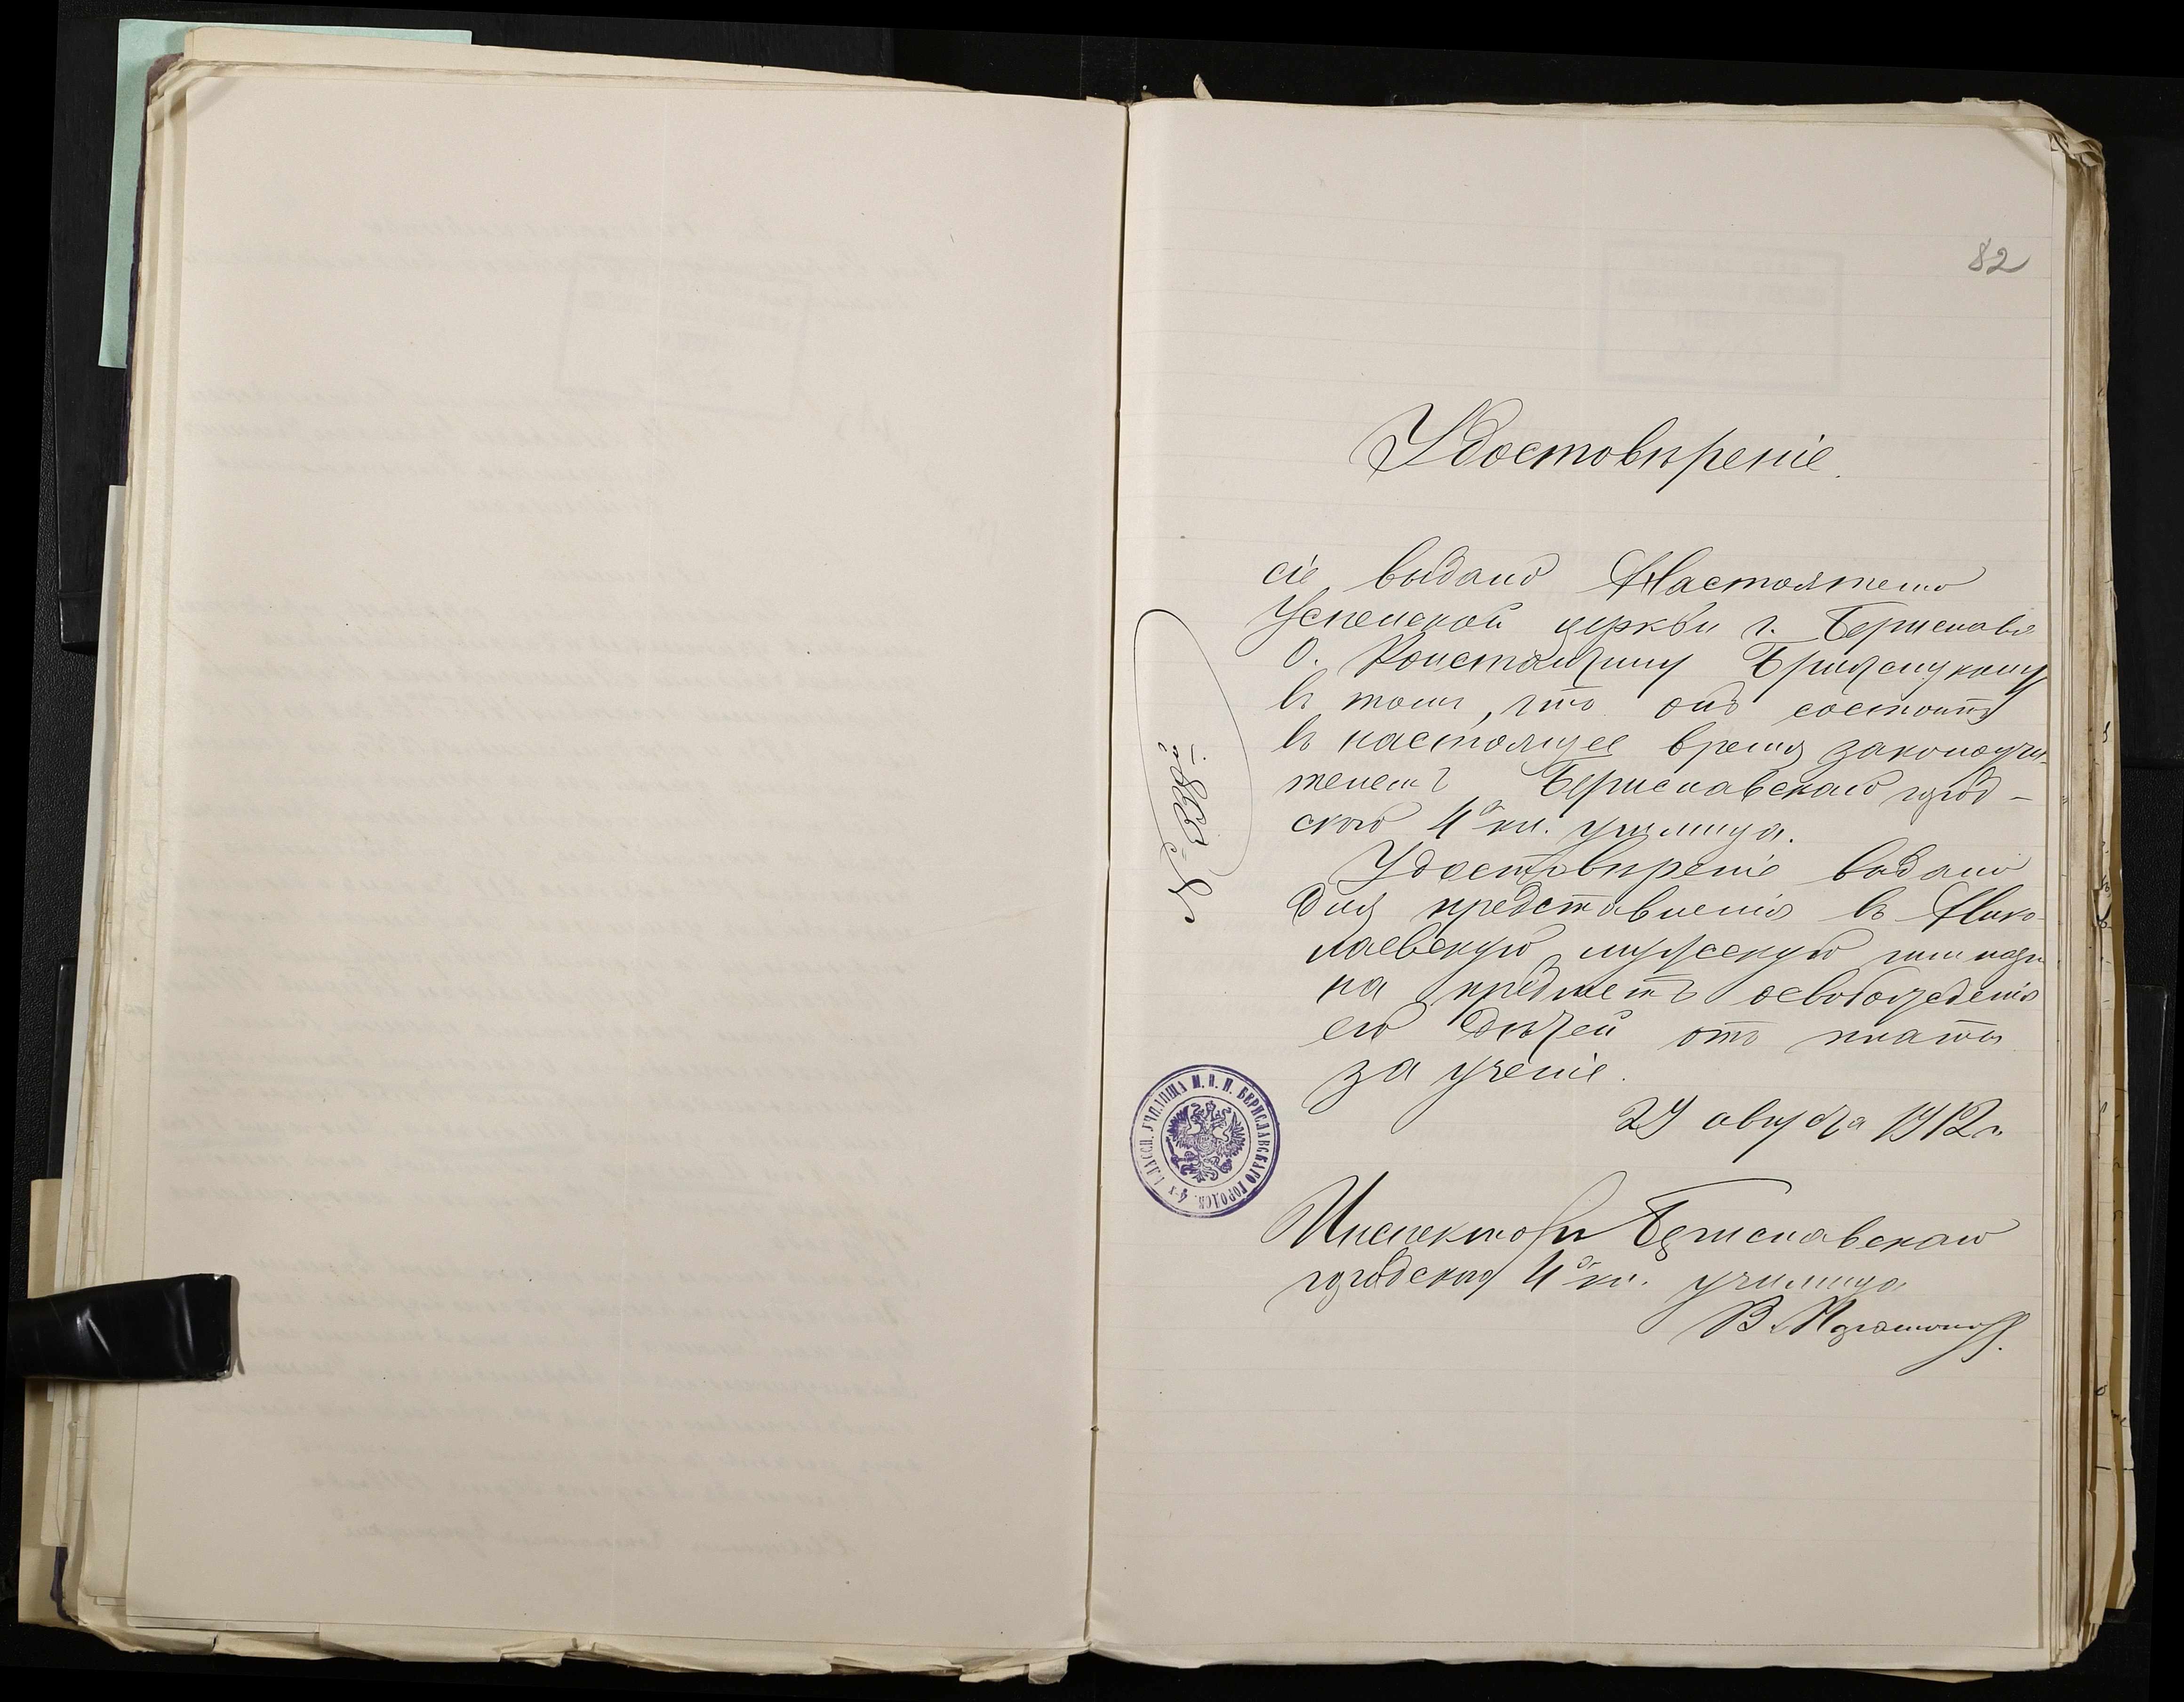 82
Удостовѣреніе.
сіе выдано Настоятелю
Успенской церкви г. Берислава
О. Константину
въ томъ, что онъ состоитъ
въ настоящее время законоучи-
телемъ Бериславскаго город-
ского 4х кл. училища.
Удостовѣреніе выдано
для представленія въ Нико-
лаевскую мужскую гимназію
на предметъ освобожденія
его дѣтей отъ платы
за ученіе.
29 августа 1912 г.
Инспекторъ Бериславскаго
городского 4х кл. училища
В.
4-Х КЛАССН. УЧИЛИЩА М. Н. П. БЕРИСЛАВСКАГО ГОРОДСК.